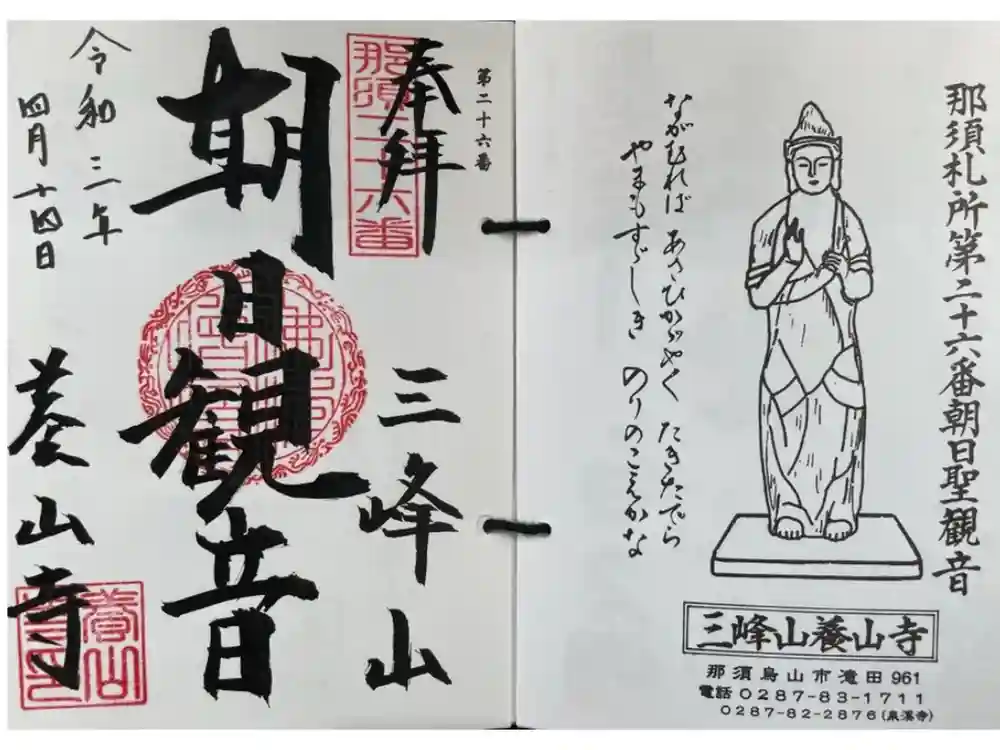 那須札所第二十六番朝日聖観音
ながむれば あさひかがやく たきたでら
やまもすゞしき のりのこゑかな
三峰山養山寺
那須烏山市滝田961
電話0287-83-1711
0287-82-2876(泉溪寺)
第二十六番
奉拜
那須二十六番
三峰山
朝日観音
令和三年
四月十四日
養山寺